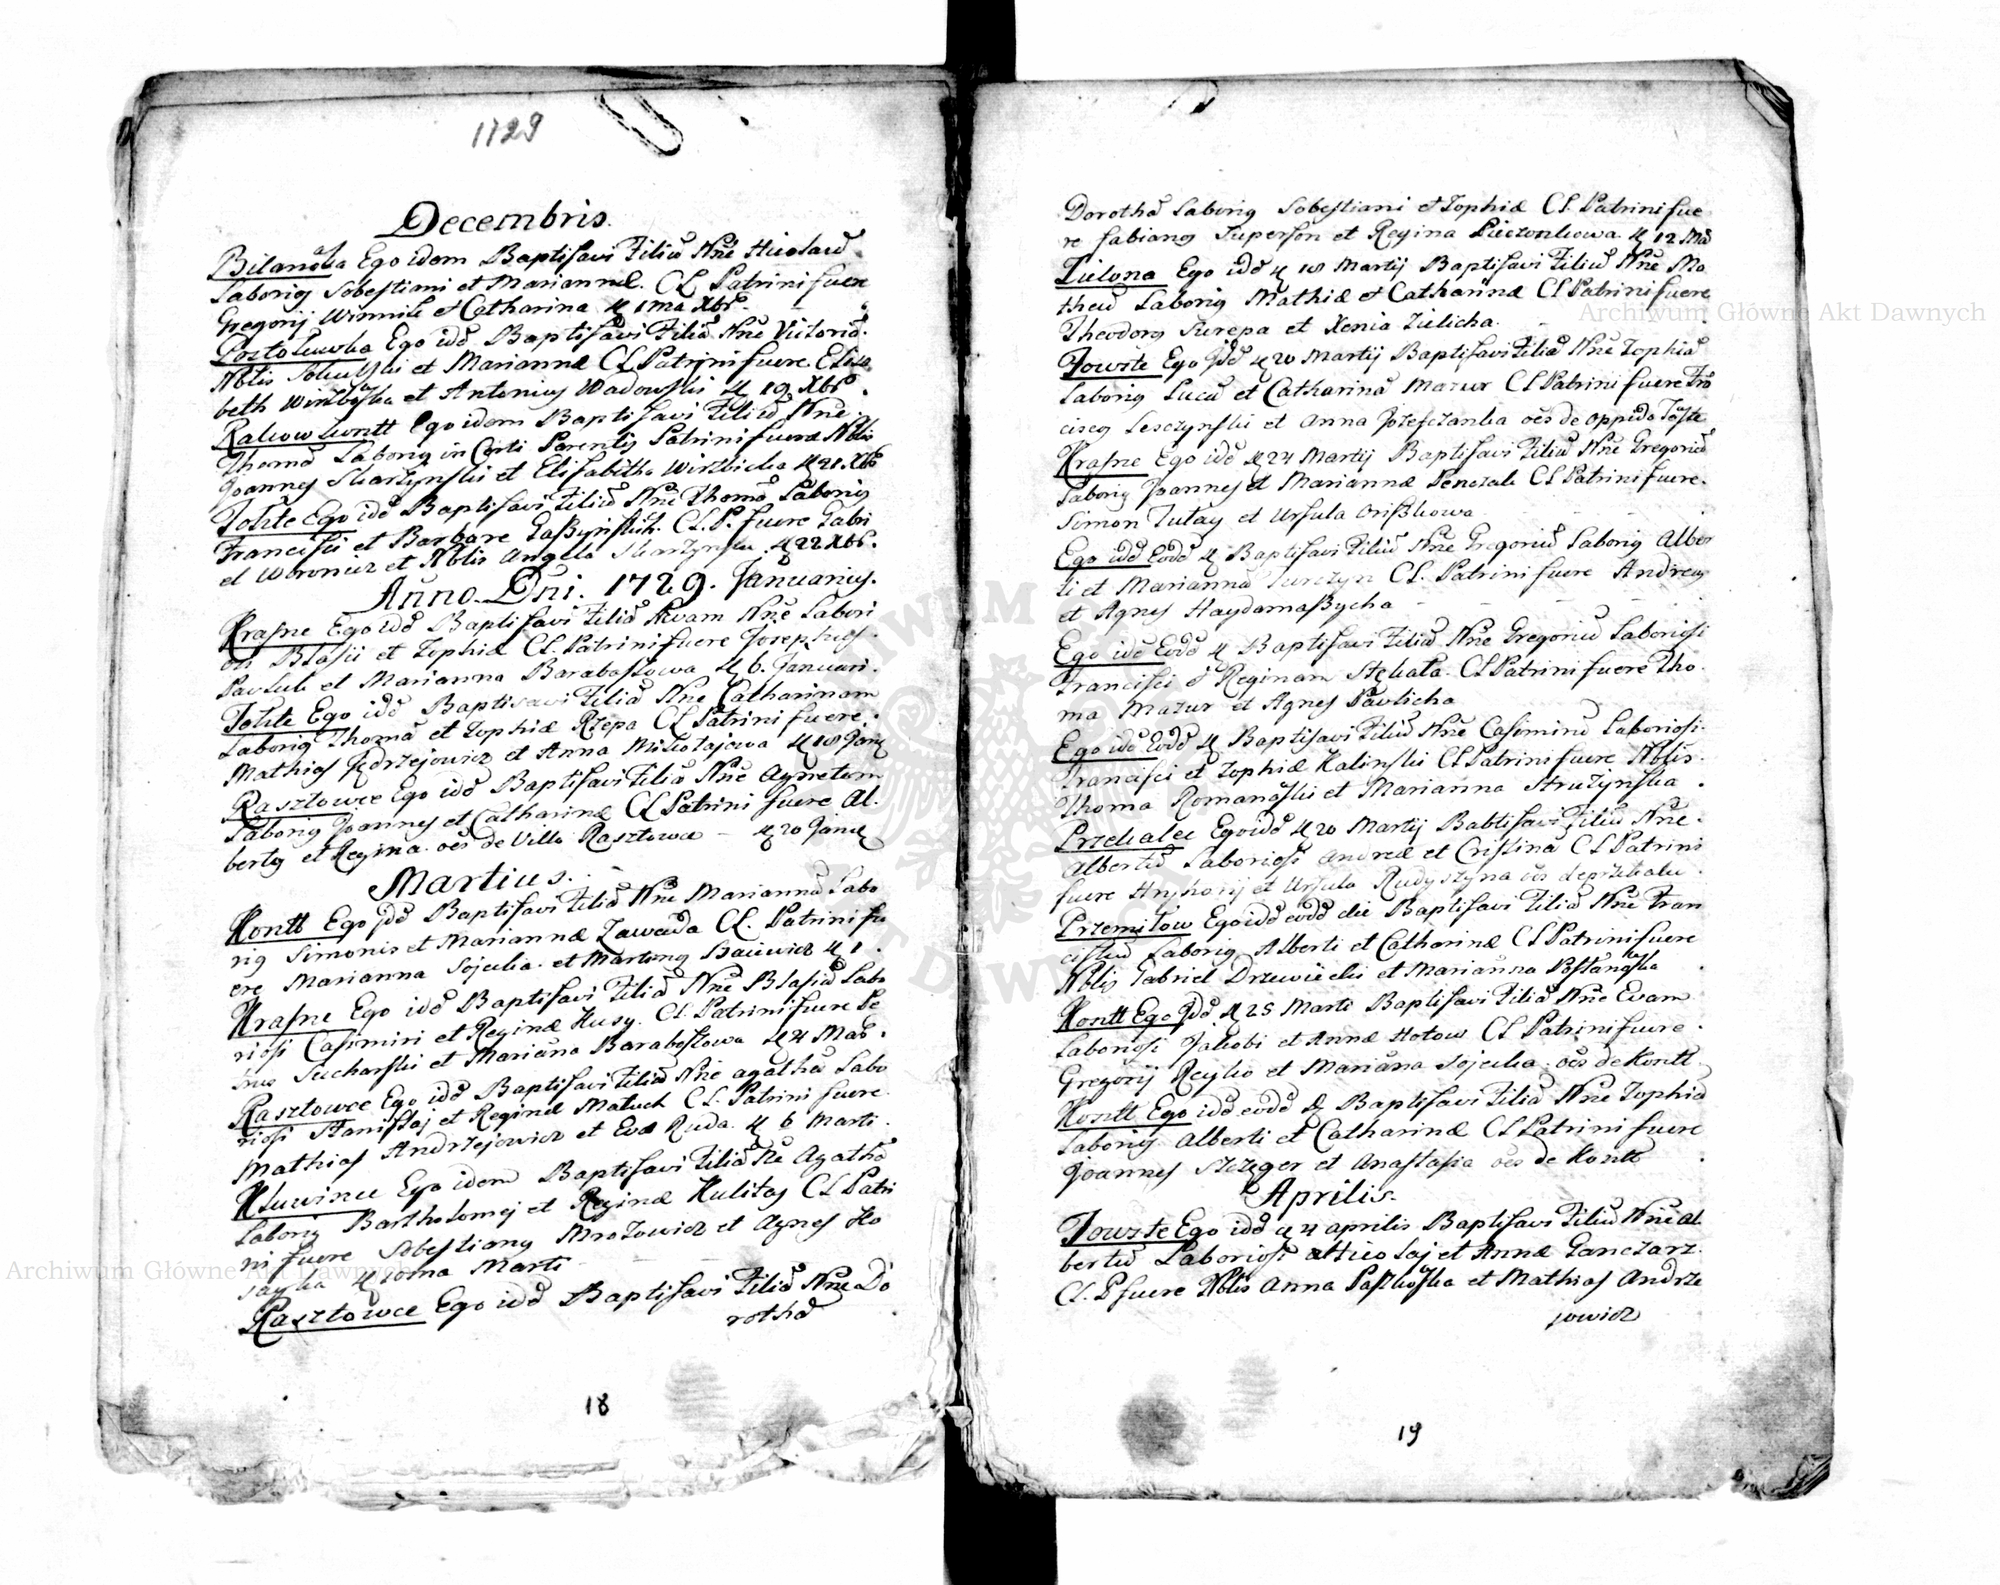 1729
Decembris.
Ego idem Baptisavi Filiū Nñe Nicolaū
Laboriosj Sobestiani et Mariannæ. CL Patrini fuere
Gregorij Winnik et Catharina 1ma Xbr.
Ego idē Baptisavi Filiā Nñe Victoriā.
Nblis et Mariannæ CL Patrini fuere Elisa
beth et Antonius Wadowski 19 Xbr
Ego idem Baptisavi Filiū Nñe
Thomā Laboriosj in Certi Parentis Patrini fuere Nblis
Joannes Skarzynski et Elisabetha Wirzbicka 21 Xbr
Tokte Ego idē Baptisavi Filiū Nñe Thomā Laboriosj
Francisci et Barbare CL. P. fuere Gabri
el Woroniez et Nblis Angela Skarzynska 22 Xbr.
Anno Dñi. 1729. Januarius.
Krasne Ego idē Baptisavi Filiā Evam Nñe Labori
osi Blasii et Zophiæ CL. Patrini fuere Josephus
Pavluk et Marianna Barabaszowa 6. Januari.
Tokte Ego idē Baptisavi Filiā Nñe Catharinam
Laboriosj Thomā et Zophiæ Rzepa CL Patrini fuere.
Mathias Jędrzejowicz et Anna Mikołajowa 18 Janŗ
Rasztowce Ego idē Baptisavi Filiā Nñe Agnetem
Laboriosj Joannes et Catharinæ CL Patrini fuere Al.
bertj et Regina oēs de Villa Rasztowce — 20 Janŗ
Martius.
Kontt Ego Jdē Baptisavi Filiā Nñe Mariannā Labo
riosj Simonis et Mariannæ Zawada CL. Patrini fu
ere Marianna Sojecka et Martinus 1.
Krasne Ego idē Baptisavi Filiū Nñe Blasiū Labo
riosi Casimiri et Reginæ Husy. CL. Patrini fuere Pe
trus Sucharski et Mariana Barabaszowa 4 Mar.
Rasztowce Ego idē Baptisavi Filiā Nñe agathā Labo
riosi Stanislaj et Reginæ Matuch CL. Patrini fuere
Mathias Andrzejowicz et Eva Ruda. 6 Marti.
Kluwince Ego idem Baptisavi Filiā Ñe Agathā
Laboriosj Bartholomej et Reginæ Kulitas CL Patri
ni fuere Sobestianus Mrozowicz et Agnes Ho
Marti
Rasztowce Ego idē Baptisavi Filiā Nñe Do
rothā
18
Dorothā Laboriosj Sobestiani et Zophiæ CL. Patrini fue
re Fabianus Superson et Regina 12 Mar
Zielona Ego idē 18 Martij Baptisavi Filiū Nñe Ma
theū Laboriosj Mathiæ et Catharinæ CL Patrini fuere
Theodorus Surepa et Xenia Zielicha.
Towste Ego Jdē 20 Martij Baptisavi Filiā Nñe Zophiā
Laboriosj Lucæ et Catharinā Mazur CL Patrini fuere Frā
ciscus Lesczynski et Anna Jozefczanka oēs de Oppido Toste
Krasne Ego idē 24 Martij Baptisavi Filiū Nñe Gregoriū
Laboriosj Joannes et Mariannæ Penczak CL Patrini fuere.
Simon Tutay et Ursula Oriszkowa
Ego idē Eodē Baptisavi Filiū Nñe Gregoriū Laboriosj Alber
ti et Mariannā CL. Patrini fuere Andreas
et Agnes Haydamaszycha
Ego idē Eodē Baptisavi Filiū Nñe Gregoriū Laboriosi
Francisci et Reginam Stekala. CL Patrini fuere Tho.
ma Mazur et Agnes Pavlicha
Ego idē Eodē Baptisavi Filiū Nñe Casimirū Laboriosi.
Francisci et Zophiæ Kalinski CL Patrini fuere Nblis.
Thoma Romanoski et Marianna Struzynska.
Przekalec Ego idē 20 Martij Babtisavi Filiū Nñe.
Albertū Laboriosi Andreæ et Cristina CL Patrini
fuere et Ursula oēs
Przemiłow Ego idē eodē die Baptisavi Filiū Nñe Fran
ciscū Laboriosj Alberti et Catharinæ CL Patrini fuere
Nblis Gabriel Drzewiecki et Marianna
Kontt Ego Jdē 25 Marti Baptisavi Filiā Nñe Evam
Laboriosi Jakobi et Annæ Hotow CL Patrini fuere.
Gregorij et Mariana Sojecka oēs de Kontt
Kontt Ego idē eodē Baptisavi Filiā Nñe Zophiā
Laboriosj Alberti et Catharinæ CL Patrini fuere
Joannes et Anastasia oēs de Kontt
Aprilis.
Towste Ego idē 4 aprilis Baptisavi Filiū Nñe al
bertū Laboriosi et Annæ Ganczarz.
CL. P fuere Nblis Anna et Mathias Andrze
jowicz
19
Archiwum Główne Akt Dawnych
Archiwum Główne Akt Dawnych